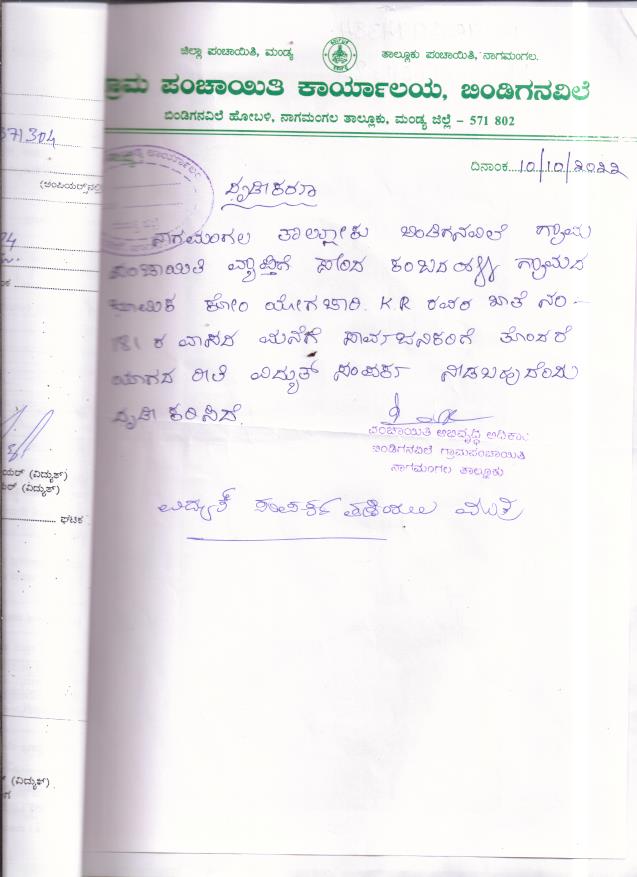 ಜಿಲ್ಲಾ ಪಂಚಾಯಿತಿ, ಮಂಡ್ಯ
ತಾಲ್ಲೂಕು ಪಂಚಾಯಿತಿ, ನಾಗಮಂಗಲ.
ಗ್ರಾಮ ಪಂಚಾಯಿತಿ ಕಾರ್ಯಾಲಯ, ಬಿಂಡಿಗನವಿಲೆ
ಬಿಂಡಿಗನವಿಲೆ ಹೋಬಳಿ, ನಾಗಮಂಗಲ ತಾಲ್ಲೂಕು, ಮಂಡ್ಯ ಜಿಲ್ಲೆ - 571 802
571304
ದಿನಾಂಕ...10/10/೨೦೨೨
ದೃಢೀಕರಣ
ನಾಗಮಂಗಲ ತಾಲ್ಲೂಕು ಬಿಂಡಿಗನವಿಲೆ ಗ್ರಾಮ
ಪಂಚಾಯಿತಿ ವ್ಯಾಪ್ತಿಗೆ ಸೇರಿದ ಕಂಬದಹಳ್ಳಿ ಗ್ರಾಮದ
ಕೋಂ ಯೋಗಚಾರಿ. K.R ರವರ ಖಾತೆ ನಂ-
181 ರ ವಾಸದ ಮನೆಗೆ ಸಾರ್ವಜನಿಕರಿಗೆ ತೊಂದರೆ
ಯಾಗದ ರೀತಿ ವಿದ್ಯುತ್ ಸಂಪರ್ಕ ನೀಡಬಹುದೆಂದು
ದೃಢೀಕರಿಸಿದೆ.
ಪಂಚಾಯಿತಿ ಅಭಿವೃದ್ಧಿ ಅಧಿಕಾರಿ
ಬಿಂಡಿಗನವಿಲೆ ಗ್ರಾಮಪಂಚಾಯಿತಿ
ನಾಗಮಂಗಲ ತಾಲ್ಲೂಕು
(ವಿದ್ಯುತ್)
(ವಿದ್ಯುತ್)
ಘಟಕ
ವಿದ್ಯುತ್ ಸಂಪರ್ಕ ಮಾತ್ರ
(ವಿದ್ಯುತ್)